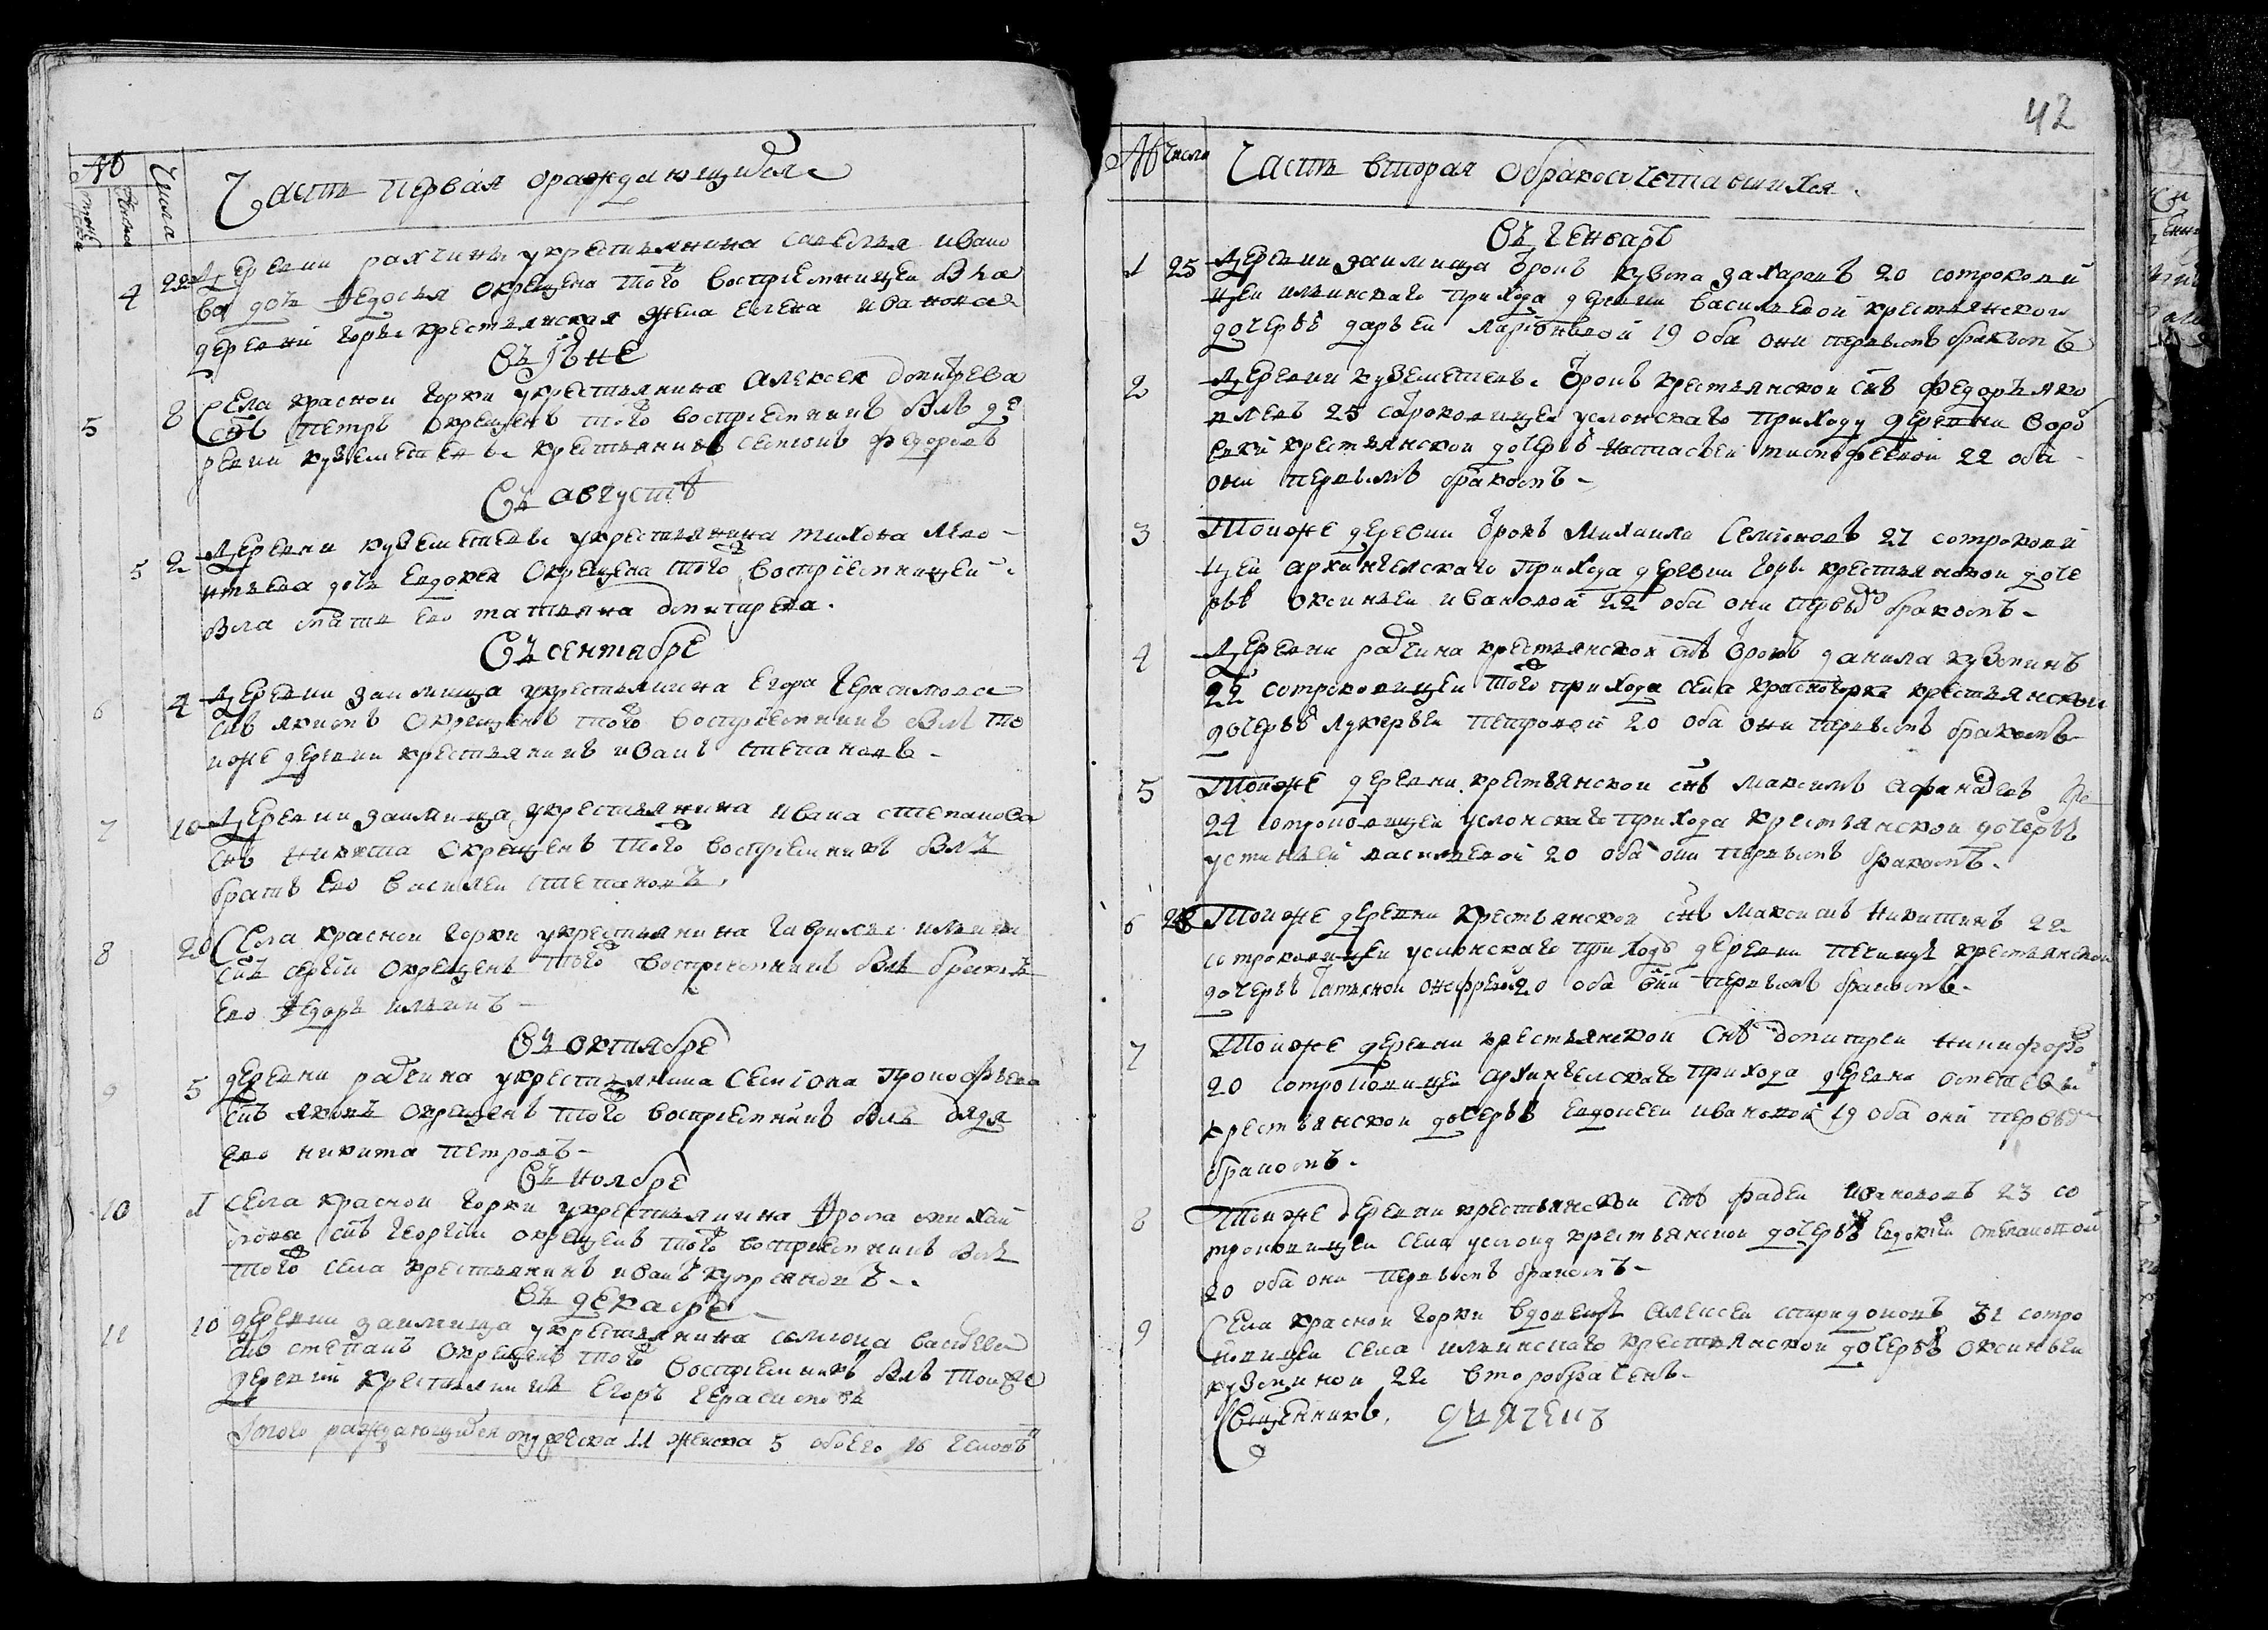 № числа
мужеска
женска
Часть первая о раждающихся
4 22 деревни рахчины у крестьянина савелья ивано
ва дочь Федосья окрещена того восприемницей бла
деревни горы крестьянская жена елена иванова
Въ Июне
5 8 Села красной горки у крестьянина Алексея дмитрева
снъ петръ окрещенъ того восприемникъ былъ де
ревни куземетевы крестьянинъ семионъ федоровъ
Въ августѣ
5 2 Деревни куземетевы у крестьянина тихона лео
нтьева дочь Евдокея окрещена того восприемницей
была мать ево татьяна дмитрева.
Въ сентебре
6 4 Деревни займища у крестьянина Егора Герасимова
снъ якимъ окрещенъ того восприемникъ былъ то
иже деревни крестьянинъ иванъ степановъ
7 10 Деревни займища у крестьянина ивана степанова
снъ никита окрещенъ того восприемникъ былъ
братъ ево василеи степановъ
8 20 Села красной горки у крестьянина гаврилы ильина
снъ сергѣй окрещенъ того восприемникъ былъ братъ
ево Федоръ ильинъ
Въ октябре
9 5 деревни рачина у крестьянина Семиона прокофьева
снъ яковъ окрещенъ того восприемникъ былъ дядя
ево никита петровъ
Въ ноябре
10 1 села красной горки у крестьянина Фрола михай
лова снъ Георгѣй окрещенъ того восприемникъ былъ
того села крестьянинъ иванъ купреяновъ
Въ декабре
11 10 деревни займища у крестьянина семиона васильева
снъ степанъ окрещенъ того восприемникъ былъ тоиже
деревни крестьянинъ Егоръ Герасимовъ
Итого раждающихся мужеска 11 женска 5 обоего 16 человѣкъ
42
№ числа
Часть вторая о бракосочетавшихся
Въ генварѣ
1 25 Деревни займища отрокъ кузма захаровъ 20 сотрокови
цеи ильинскаго прихода деревни васильевой крестьянской
дочерью дарьей ларионовой 19 оба они первымъ бракомъ
2 Деревни куземетевы отрокъ крестьянской снъ федоръ яко
влевъ 25 сотроковицеи услонскаго приходу деревни воро
бевки крестьянской дочерью настасьей тимофеевой 22 оба
они первымъ бракомъ
3 Тоиже деревни отрокъ Михаила Семионовъ 27 сотрокови
цей архангелскаго прихода деревни горы крестьянской доче
рью оксиньей ивановой 22 оба они первымъ бракомъ
4 Деревни рачина крестьянской снъ отрокъ данила кузминъ
22 сотроковицеи того прихода села красногорки крестьянской
дочерью лукерьей петровой 20 оба они первымъ бракомъ
5 Тоиже деревни крестьянской снъ максимъ афанасевъ
24 сотроковицеи услонскаго прихода крестьянской дочерью
устиньей васильевой 20 оба они первымъ бракомъ
6 28 Тоиже деревни крестьянской снъ максимъ никитинъ 22
сотроковицеи услонскаго приходу деревни печищъ крестьянской
дочерью татьяной онофревой 20 оба они первымъ бракомъ
7 Тоиже деревни крестьянской снъ дмитреи никифоро
20 сотроковицеи архангелскаго прихода деревни
крестьянской дочерью евдокеей ивановой 19 оба они первымъ
бракомъ
8 Тоиже деревни крестьянской снъ фадеи ивановъ 23 со
троковицеи села услона крестьянской дочерью евдокией степановой
20 оба они первымъ бракомъ
9 Села красной горки вдовецъ алексеи спиридоновъ 31 сотро
ковицеи села ильинскаго крестьянской дочерью оксиньей
кузминой 22 второбрачень
Священникъ